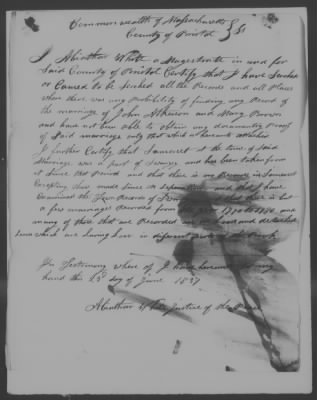 Commonwealth of Massachusetts } Ss
County of Bristol
I Abiathar White a Magestrate in and for
Said County of Bristol Certify that I have Serched
or Caused to be Serched all the Records and all Places
where there was any Probibility of finding any Record of
the marriage of John Atherton and Mary Bowen
and have not been able to obtain any documentry Proof
of Said marriage only that which is herewith
I further Certify that Somerset at the time of Said
Marriage was a part of Swanzey and has been taken from
it Since that Period and that there is no Records in Somerset
Excepting those made Since its Seperation and that I have
Examined the Records of and that there is but
a few marriages Recorded from to 1790 and
many of them that are Recorded and detached
Leaves which are laying Loose in different parts of the Book
In Testimony where of I have hereunto Set my
hand this 23d day of June 1837
Abiathar White Justice of the Peace